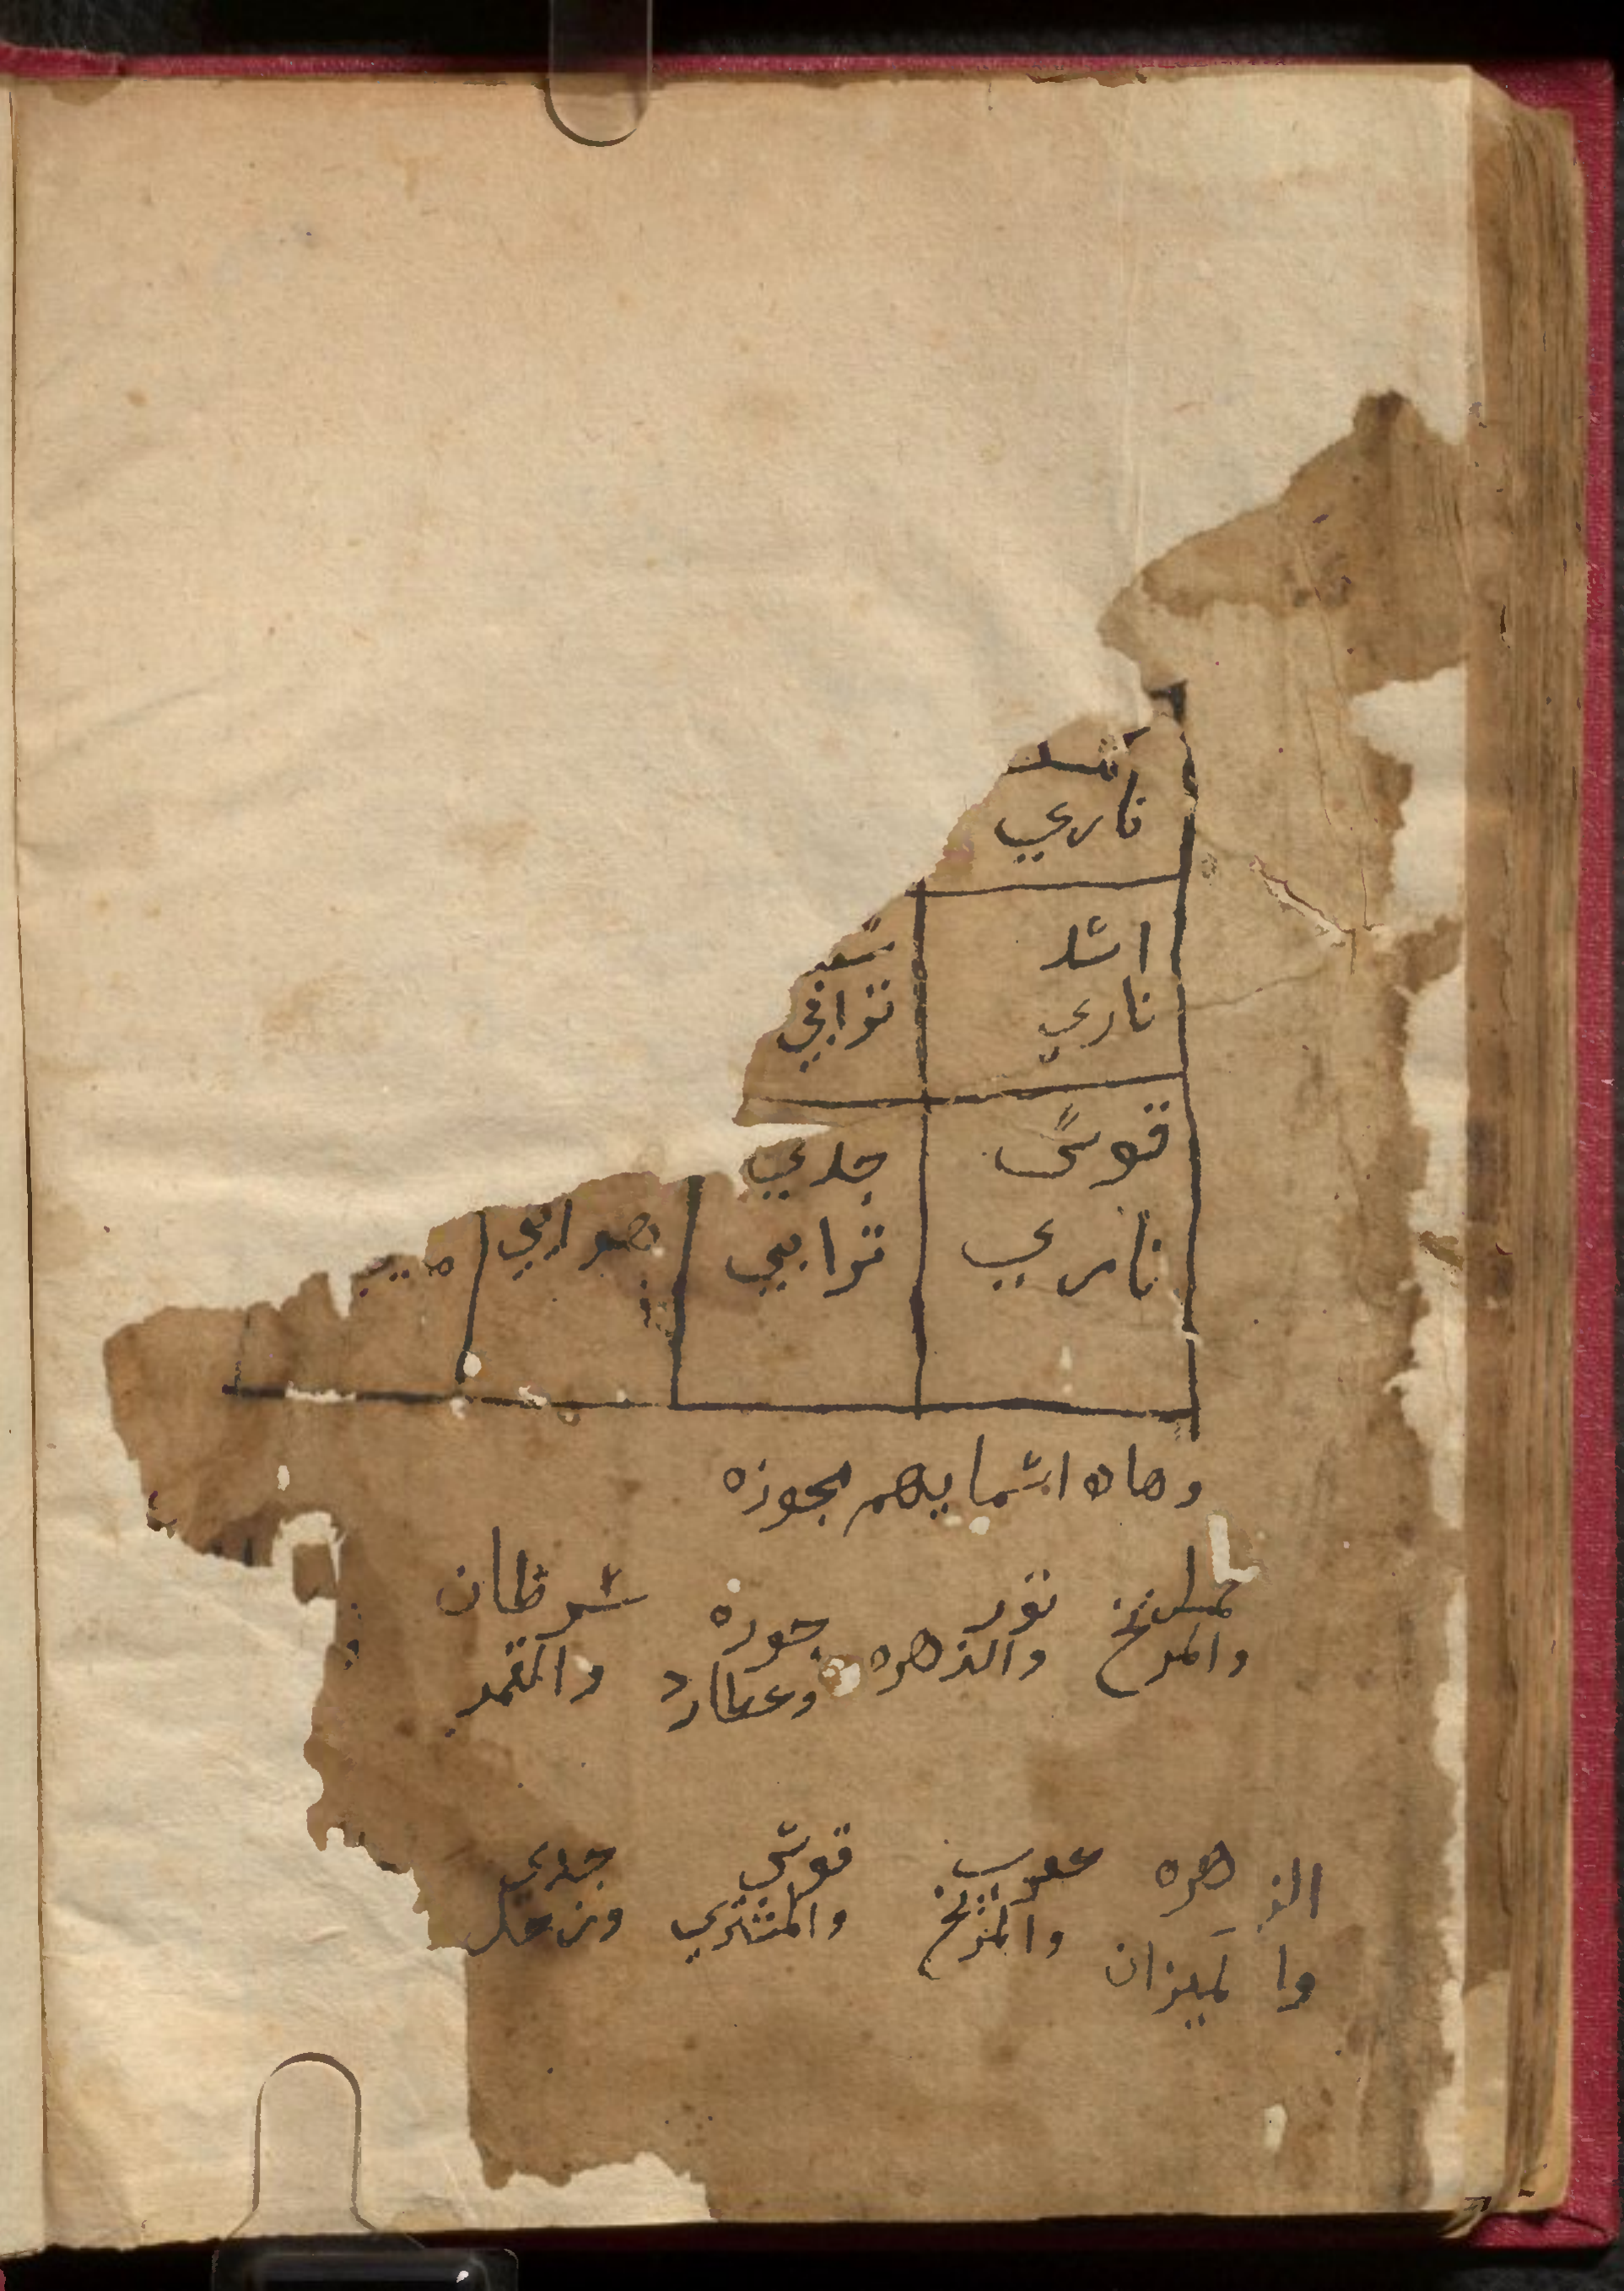 ناري
اسد
ناري
ترابي
قوس
جدي
ناري
ترابي
هوايي
وهاه اسمايهم بجوزه
ثور
جوزه
سرطان
والمريخ
والزهره
وعطارد
والقمر
الزهره
عقرب
قوس
جدي
والميزان
والمريخ
والمشتري
وزحل